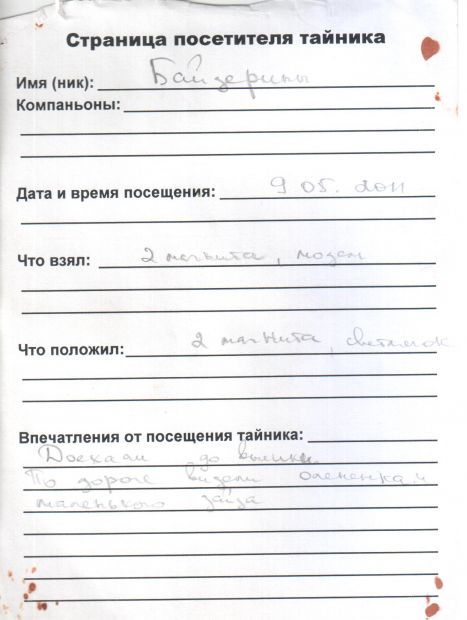 Страница посетителя тайника
Имя (ник): Байдерины
Компаньоны:
Дата и время посещения: 9 05. 2011
Что взял: 2 магнита, модем
Что положил: 2 магнита, светлячок
Впечатления от посещения тайника:
Доехали до вышки.
По дороге видели олененка и
маленького зайца